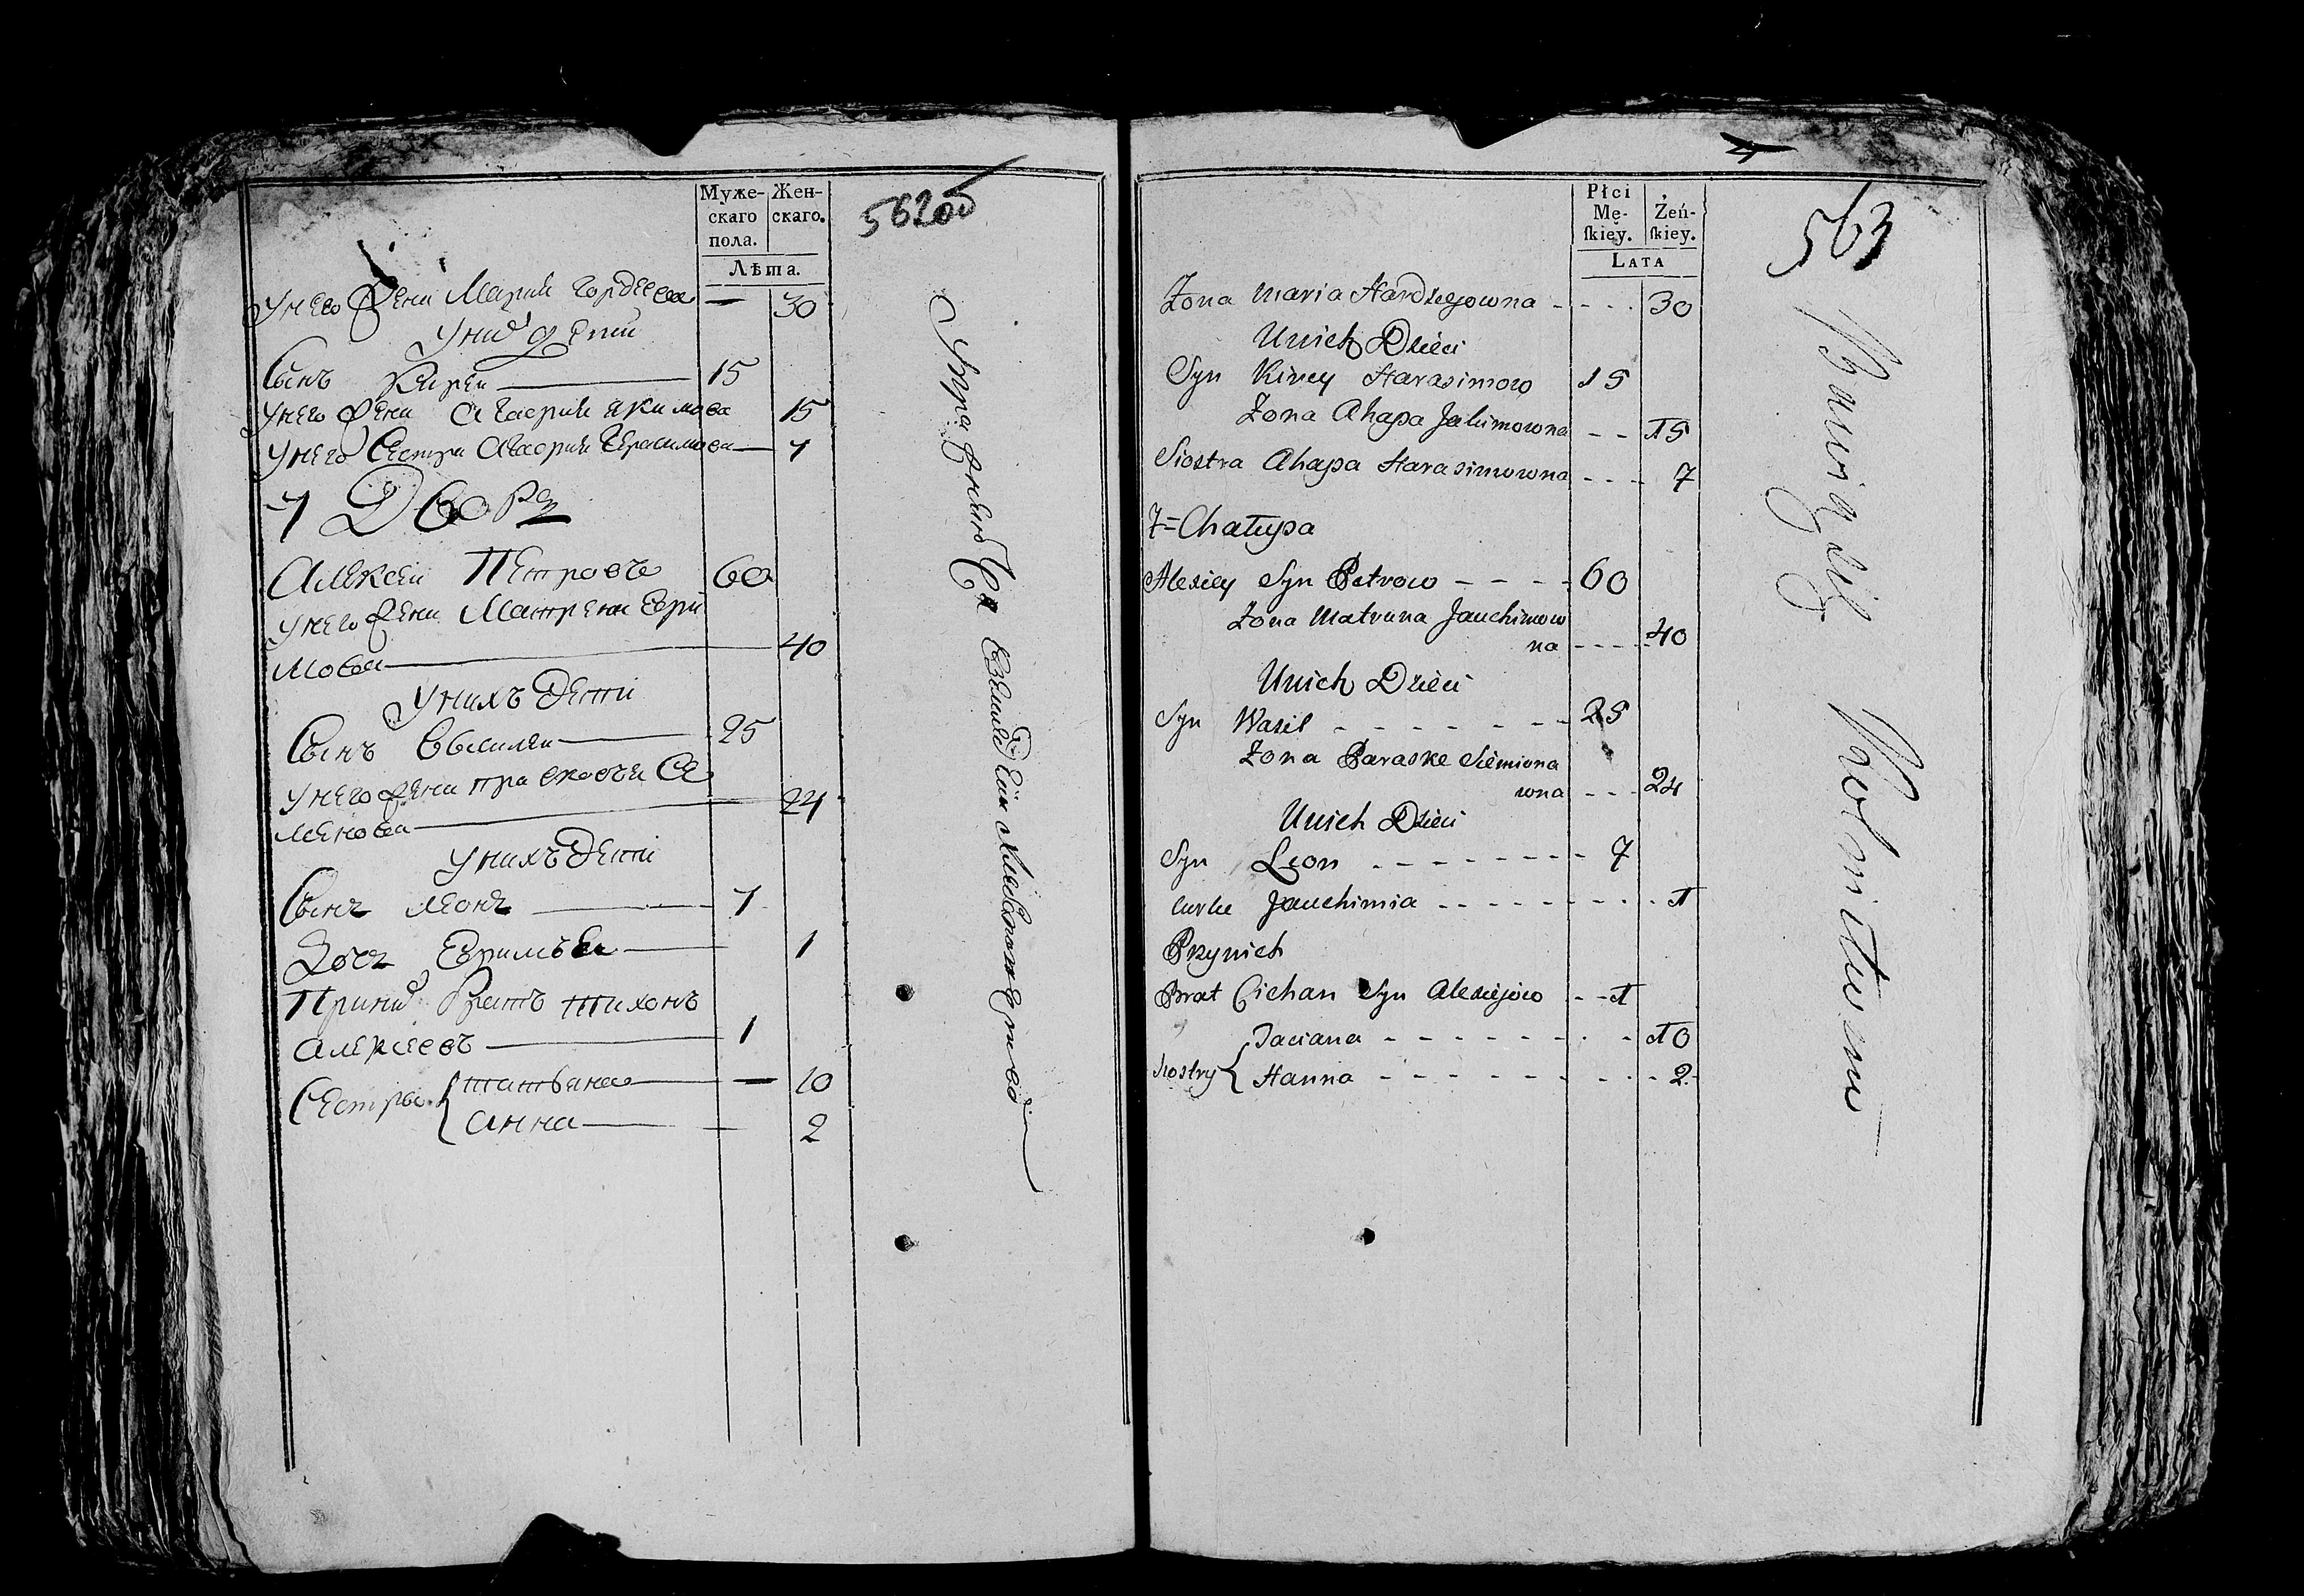 Муже-
скаго
пола.
Жен-
скаго.
Лѣта.
562об
У него жена Марья Гордеева — 30
У них дети
Сынъ Кирей 15
У него жена Агафия Якимова 15
У него Сестра Агафия Герасимова 7
7 Дворъ
Алексей Петровъ 60
У него жена Матрена Ефи
мова 40
У нихъ Дети
Сынъ Василей 25
У него жена Прасковья Се
менова 24
У нихъ Дети
Сынъ Леонъ 7
Дочь 1
При них Братъ Тихонъ
Алексеевъ 1
Сестры { Татьяна — 10
Анна 2
Płci
Mę-
ſkiey.
Żeń-
ſkiey.
LATA
563
Żona Maria Hardziejowna 30
Unich Dzieci
Syn Kirey Harasimow 15
Żona Ahapa Jakimowna 15
Siostra Ahapa Harasimowna 7
7= Chałupa
Alexiey Syn Petrow 60
Żona Matruna Jauchimow
na 40
Unich Dzieci
Syn Wasil 25
Żona Paraske Siemiono
wna 24
Unich Dzieci
Syn Leon 7
Curka Jauchimia 1
Przynich
Brat Cichan Syn Alexiejow 1
Taciana 10
Siostry { Hanna 2